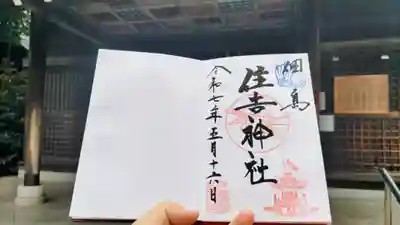 細島
住吉神社
令和七年五月十六日